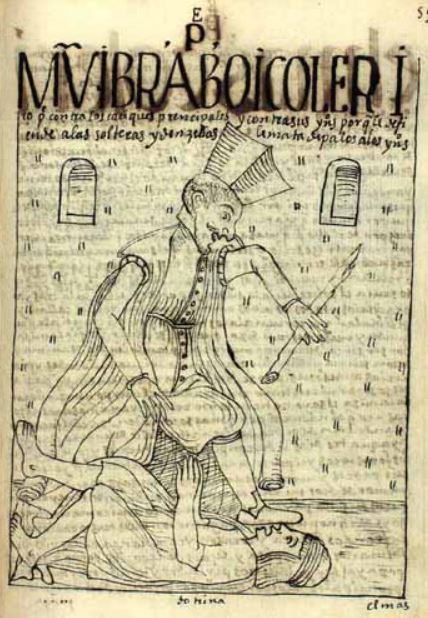 E
P̃
MṼI BRABO I COLERI
co p̃ contra los caciques prencipales y contra sus yñs por q̃ le defi
ende a las solteras y donzellas le mata de palos a los yñs
dotrina
el mas